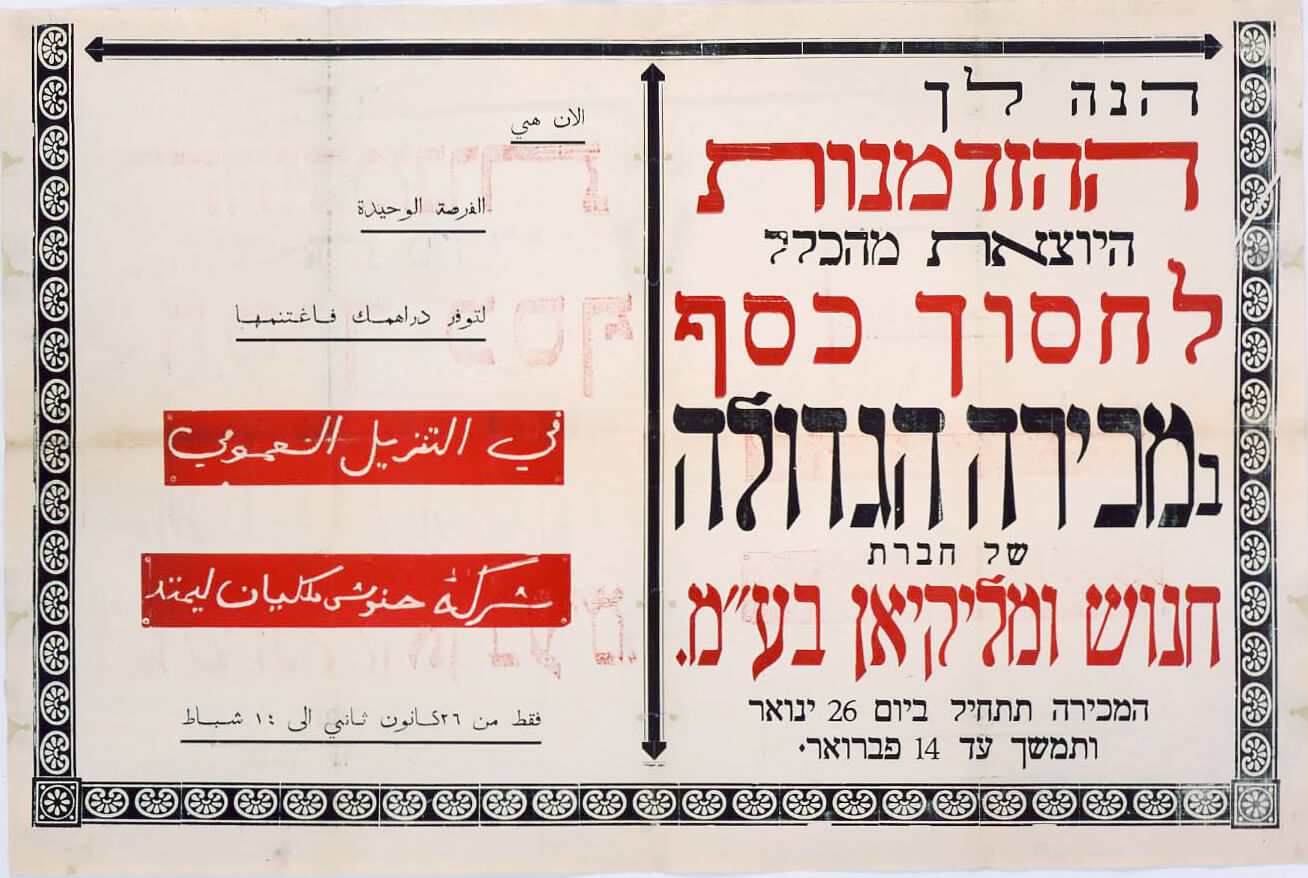 הנה לך
ההזדמנות
היוצאת מהכלל
לחסוך כסף
במכירה הגדולה
של חברת
חנוש ומליקיאן בע״מ.
המכירה תתחיל ביום 26 ינואר
ותמשך עד 14 פברואר.
الان هي
الفرصة الوحيدة
لتوفر دراهمك فاغتنمها
في التنزيل العمومي
شركة حنوش ملكيان ليمتد
فقط من ٢٦ كانون ثاني الى ١٤ شباط